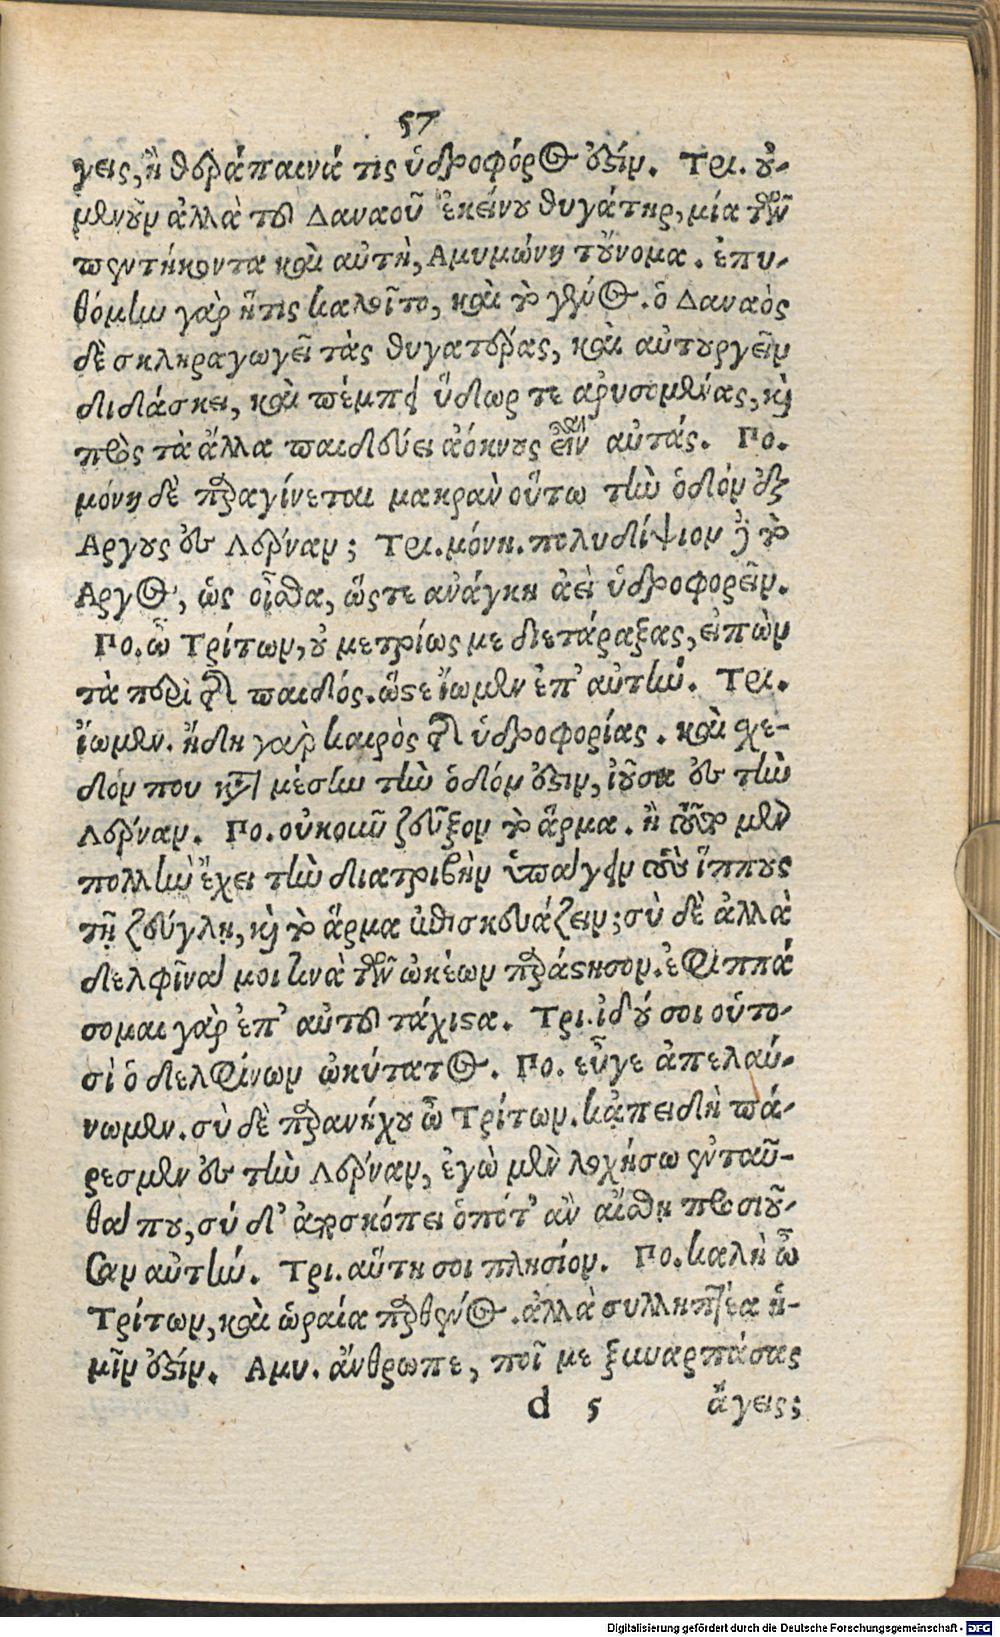 57
γεις, ἢ θεράπαινά τις ὑδροφόρος ἐστίν. Τρι. οὐ-
μενοῦν ἀλλὰ τοῦ Δαναοῦ ἐκείνου θυγάτηρ, μία τῶν
πεντήκοντα καὶ αὐτὴ, Ἀμυμώνη τοὔνομα. ἐπυ-
θόμην γὰρ ἥτις καλοῖτο, καὶ τὸ γένος. ὁ Δαναὸς
δὲ σκληραγωγεῖ τὰς θυγατέρας, καὶ αὐτουργεῖν
διδάσκει, καὶ πέμπει ὕδωρ τε ἀρυσομένας, καὶ
πρὸς τὰ ἄλλα παιδεύει ἀόκνους εἶναι αὐτάς. Πο.
μόνη δὲ παραγίνεται μακρὰν οὕτω τὴν ὁδὸν ἐξ
Αργους ἐς Λέρναν; Τρι. μόνη. πολυδίψιον δὲ τὸ
Αργος, ὡς οἶσθα, ὥστε ἀνάγκη ἀεὶ ὑδροφορεῖν.
Πο. ὦ Τρίτων, οὐ μετρίως με διετάραξας, εἰπὼν
τὰ περὶ τῆς παιδός. ὥστε ἴωμεν ἐπ' αὐτήν. Τρι.
ἴωμεν. ἤδη γὰρ καιρὸς τῆς ὑδροφορίας. καὶ σχε-
δόν που κατὰ μέσην τὴν ὁδόν ἐστιν, ἰοῦσα ἐς τὴν
Λέρναν. Πο. οὐκοῦν ζεῦξον τὸ ἅρμα. ἢ τοῦτο μὲν
πολλὴν ἔχει τὴν διατριβὴν ὑπάγειν τοὺς ἵππους
τῇ ζεύγλῃ, καὶ τὸ ἅρμα ἐπισκευάζειν; σὺ δὲ ἀλλὰ
δελφῖνά μοι τινὰ τῶν ὠκέων παράστησον. ἐφιππά
σομαι γὰρ ἐπ' αὐτοῦ τάχιστα. Τρι. ἰδού σοι οὑτο-
σὶ ὁ δελφίνων ὠκύτατος. Πο. εὖγε ἀπελαύ-
νωμεν. σὺ δὲ παρανήχου ὦ Τρίτων. κἀπειδὴ πά-
ρεσμεν ἐς τὴν Λέρναν, ἐγὼ μὲν λοχήσω ἐνταῦ-
θά που, σύ δ' ἀποσκόπει ὁπότ' ἂν αἴσθῃ προσιοῦ-
σαν αὐτήν. Τρι. αὕτη σοι πλησίον. Πο. καλὴ ὦ
Τρίτων, καὶ ὡραία παρθένος. ἀλλὰ συλληπτέα ἡ-
μῖν ἐστίν. Αμυ. ἄνθρωπε, ποῖ με ξυναρπάσας
d 5 ἄγεις;
Digitalisierung gefördert durch die Deutsche Forschungsgemeinschaft - DFG